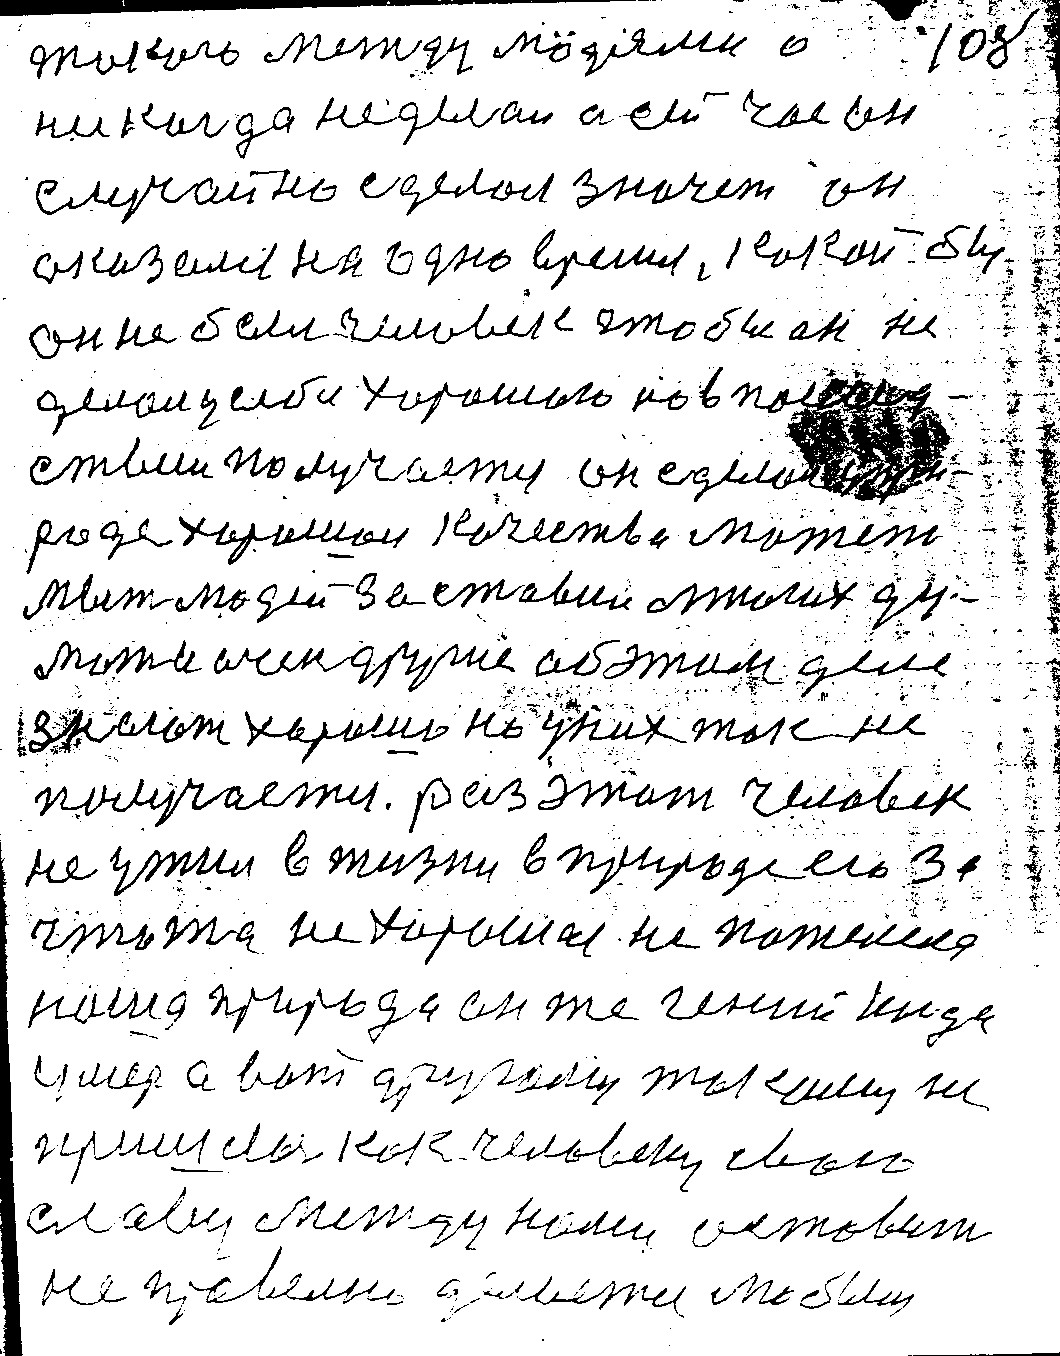 такого между людями о 108
никогда неделал а сей час он
случайно сделал значет он
оказался на одно время, какой бы
он не был человек чтобы он не
делал себи хорошого но в послед-
ствии получаети он сделал при-
роде хорошои качества может
людей заставил многих ду-
мати очен другие об этом деле
знают хорошо но у них так не
получаети. раз этот человек
не ужил в жизни в природе его за
что та не хорошая не пожелела
наша природа он же гений
умер а вот другому такому не
пришлос как человеку свою
славу между нами оставит
не правелно делаети